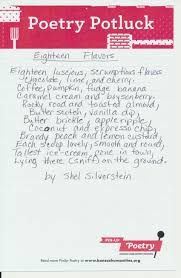 Poetry Potluck
Eighteen Flavors
Eighteen luscious, scrumptious flavors
Chocolate, lime, and cherry.
Coffee, pumpkin, fudge banana
Caramel cream and boysenberry.
Rocky road and toasted almond,
Butterscotch, vanilla dip,
Butter brickle, apple ripple,
Coconut and espresso chip,
Brandy peach and lemon custard.
Each scoop lovely, smooth and round,
Tallest ice-cream cone in town,
Lying there (sniff) on the ground.
by Shel Silverstein
Poetry
Read more Poetry at www.kansashumanities.org